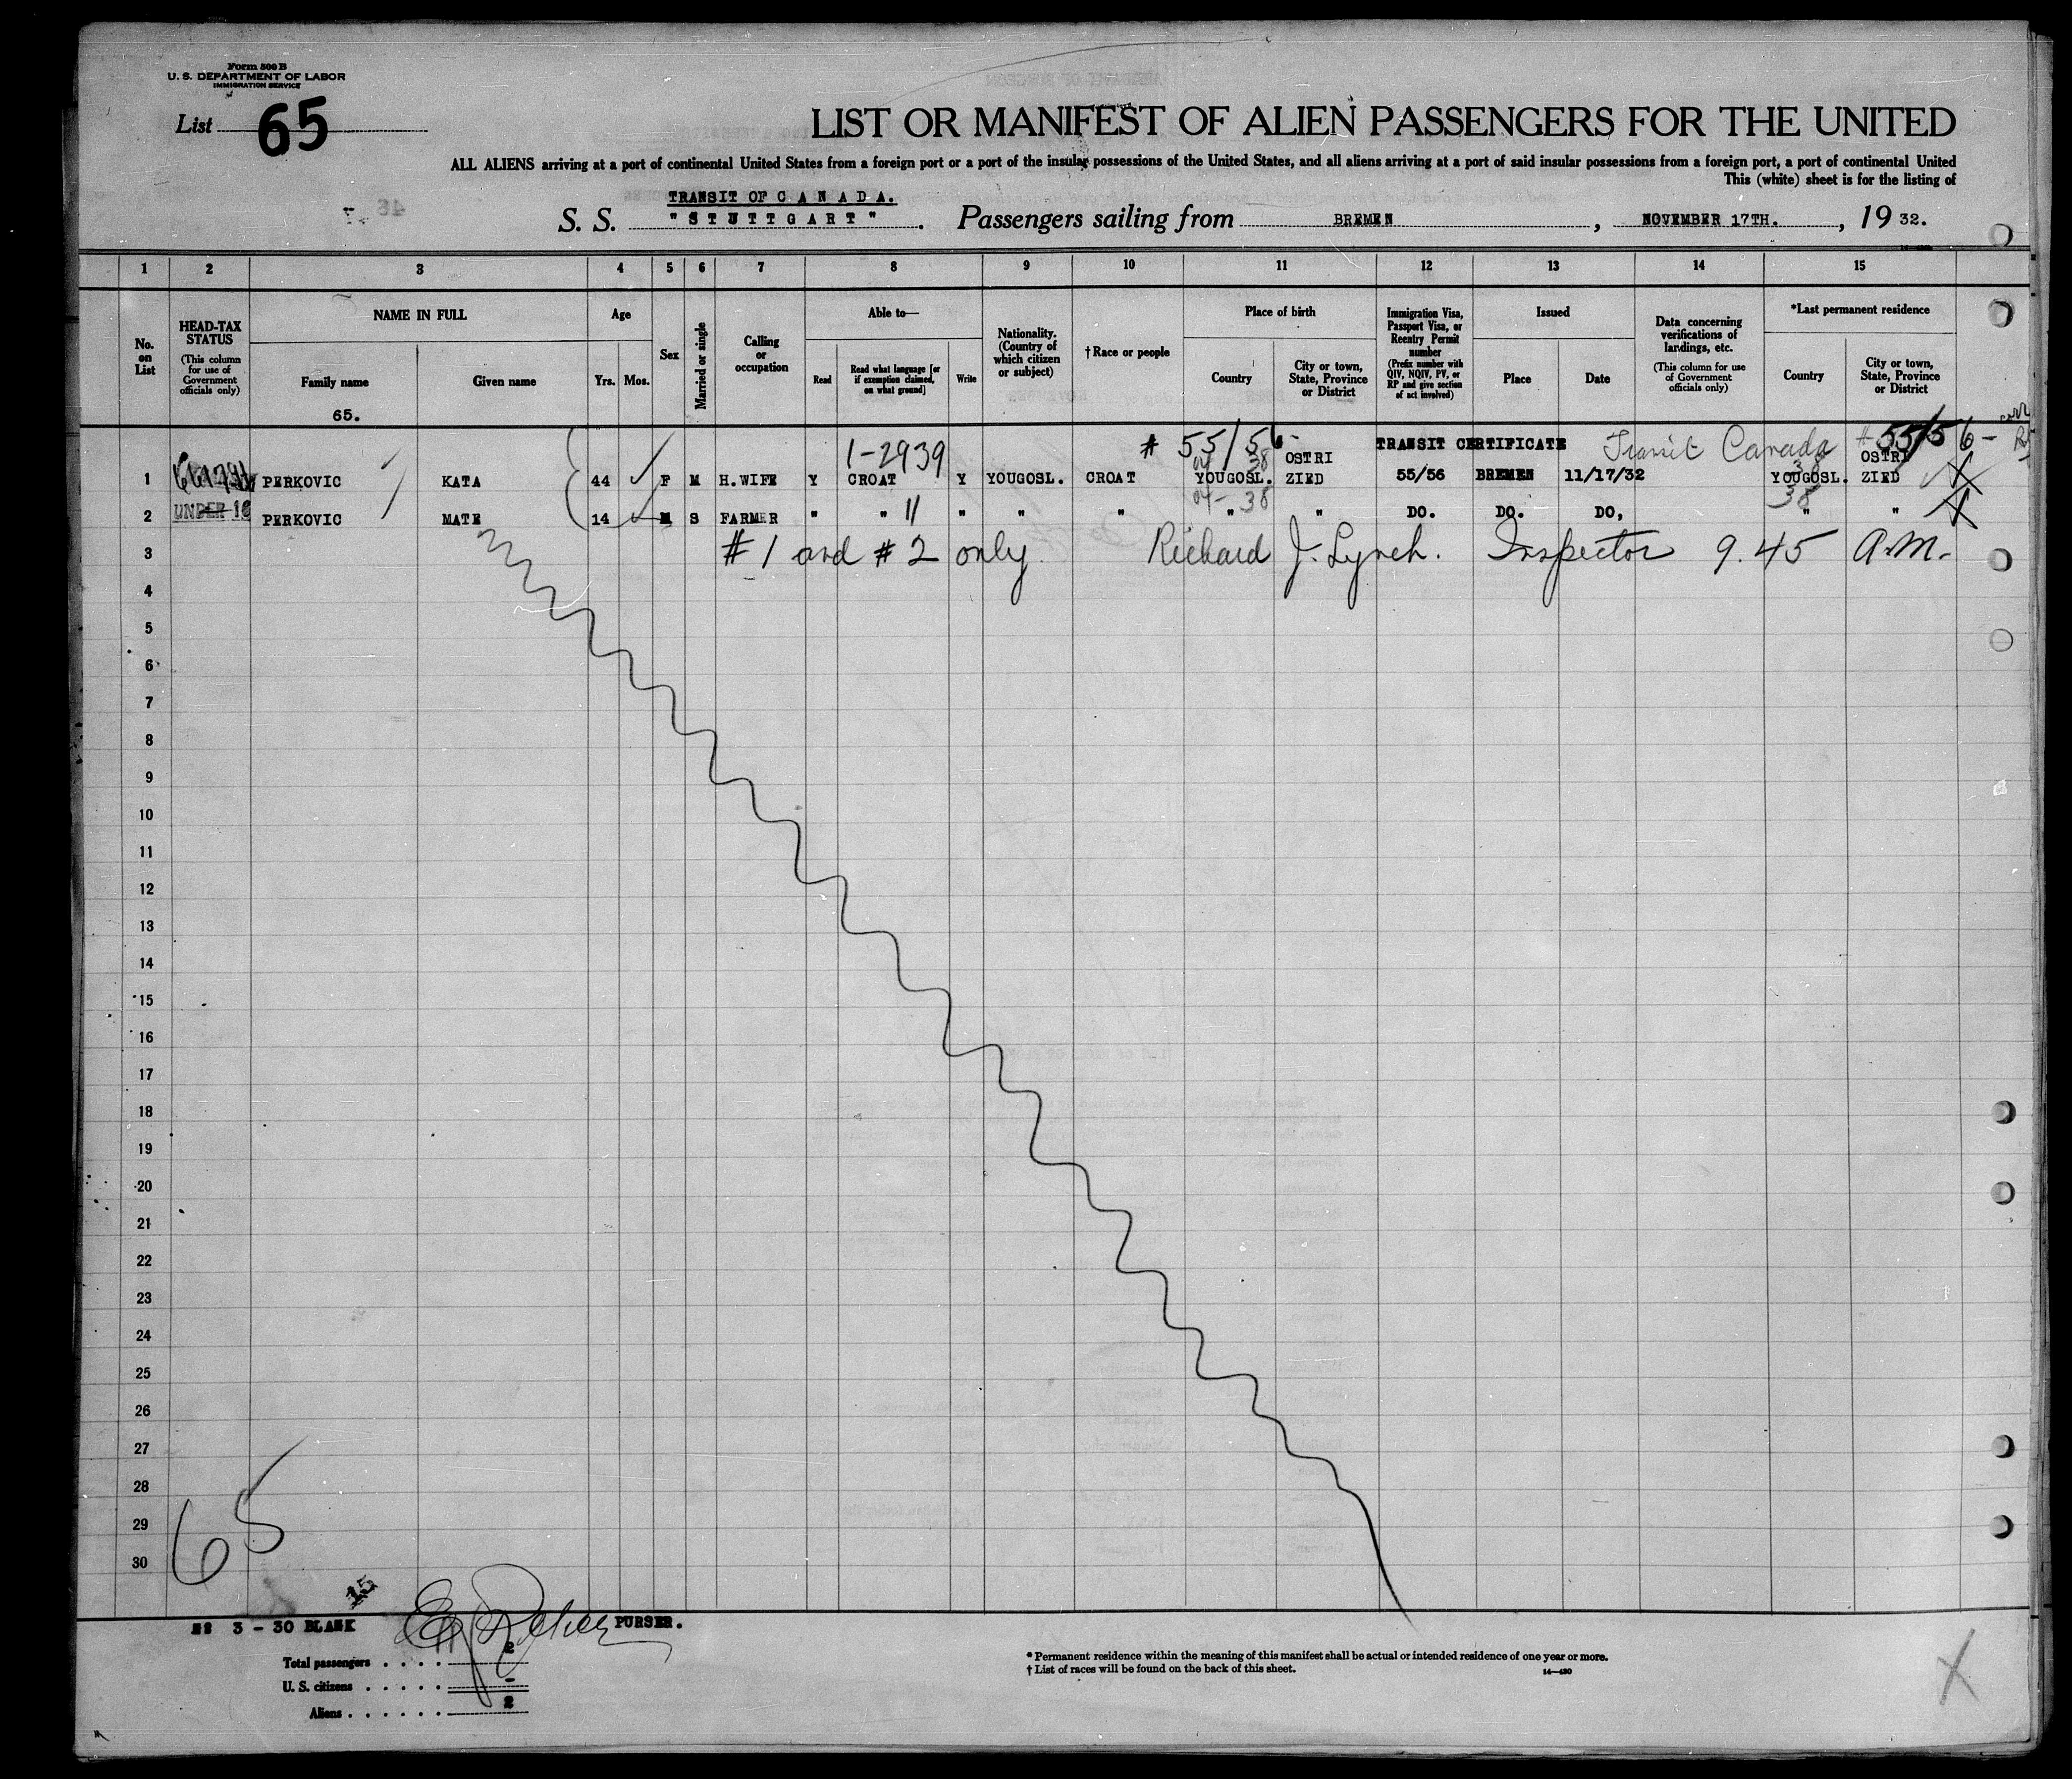 Form 500 B
U. S. DEPARTMENT OF LABOR
IMMIGRATION SERVICE
List 65
LIST OR MANIFEST OF ALIEN PASSENGERS FOR THE UNITED
ALL ALIENS arriving at a port of continental United States from a foreign port or a port of the insular possessions of the United States, and all aliens arriving at a port of said insular possessions from a foreign port, a port of continental United
This (white) sheet is for the listing of
TRANSIT OF C A N A D A.
S. S. "S T U T T G A R T". Passengers sailing from BREMEN, NOVEMBER 17TH., 19 32.
1 2 3 4 5 6 7 8 9 10 11 12 13 14 15
No. on List
HEAD-TAX STATUS
(This column for use of Government officials only)
NAME IN FULL
Family name
Given name
65.
Age
Yrs. Mos.
Sex
Married or single
Calling or occupation
Able to—
Read
Read what language [or if exemption claimed, on what ground]
Write
Nationality. (Country of which citizen or subject)
†Race or people
Place of birth
Country
City or town, State, Province or District
Immigration Visa, Passport Visa, or Reentry Permit number
(Prefix number with QIV, NQIV, PV, or RP and give section of act involved)
Issued
Place
Date
Data concerning verifications of landings, etc.
(This column for use of Government officials only)
*Last permanent residence
Country
City or town, State, Province or District
1-2939 # 55/56- TRANSIT CERTIFICATE Transit Canada #55/56-
OSTRI OSTRI
1 PERKOVIC KATA 44 F M H.WIFE Y CROAT Y YOUGOSL. CROAT YOUGOSL. ZIED 55/56 BREMEN 11/17/32 YOUGOSL. ZIED
2 UNDER 16 PERKOVIC MATE 14 M S FARMER " " " " " " " " DO. DO. DO, " "
3 #1 and #2 only Richard J. Lynch. Inspector 9.45 A.M.
4
5
6
7
8
9
10
11
12
13
14
15
16
17
18
19
20
21
22
23
24
25
26
27
28
29
30
65
15
3 - 30 BLANK
PURSER.
Total passengers . . . . 2
U. S. citizens . . . . . -
Aliens . . . . . . 2
* Permanent residence within the meaning of this manifest shall be actual or intended residence of one year or more.
† List of races will be found on the back of this sheet.
14—480